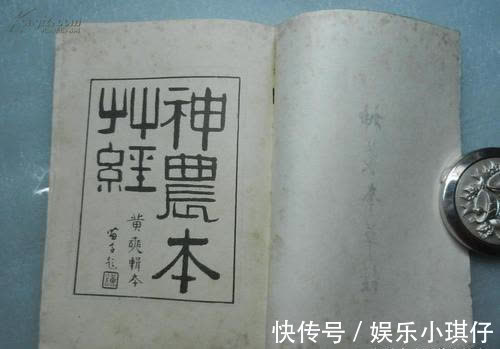 神農本
艸經
黄奭輯本
快传号／娱乐小琪仔